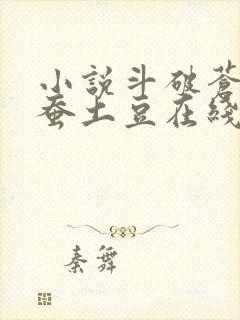 小說斗破蒼
蚕土豆在綫
秦舞